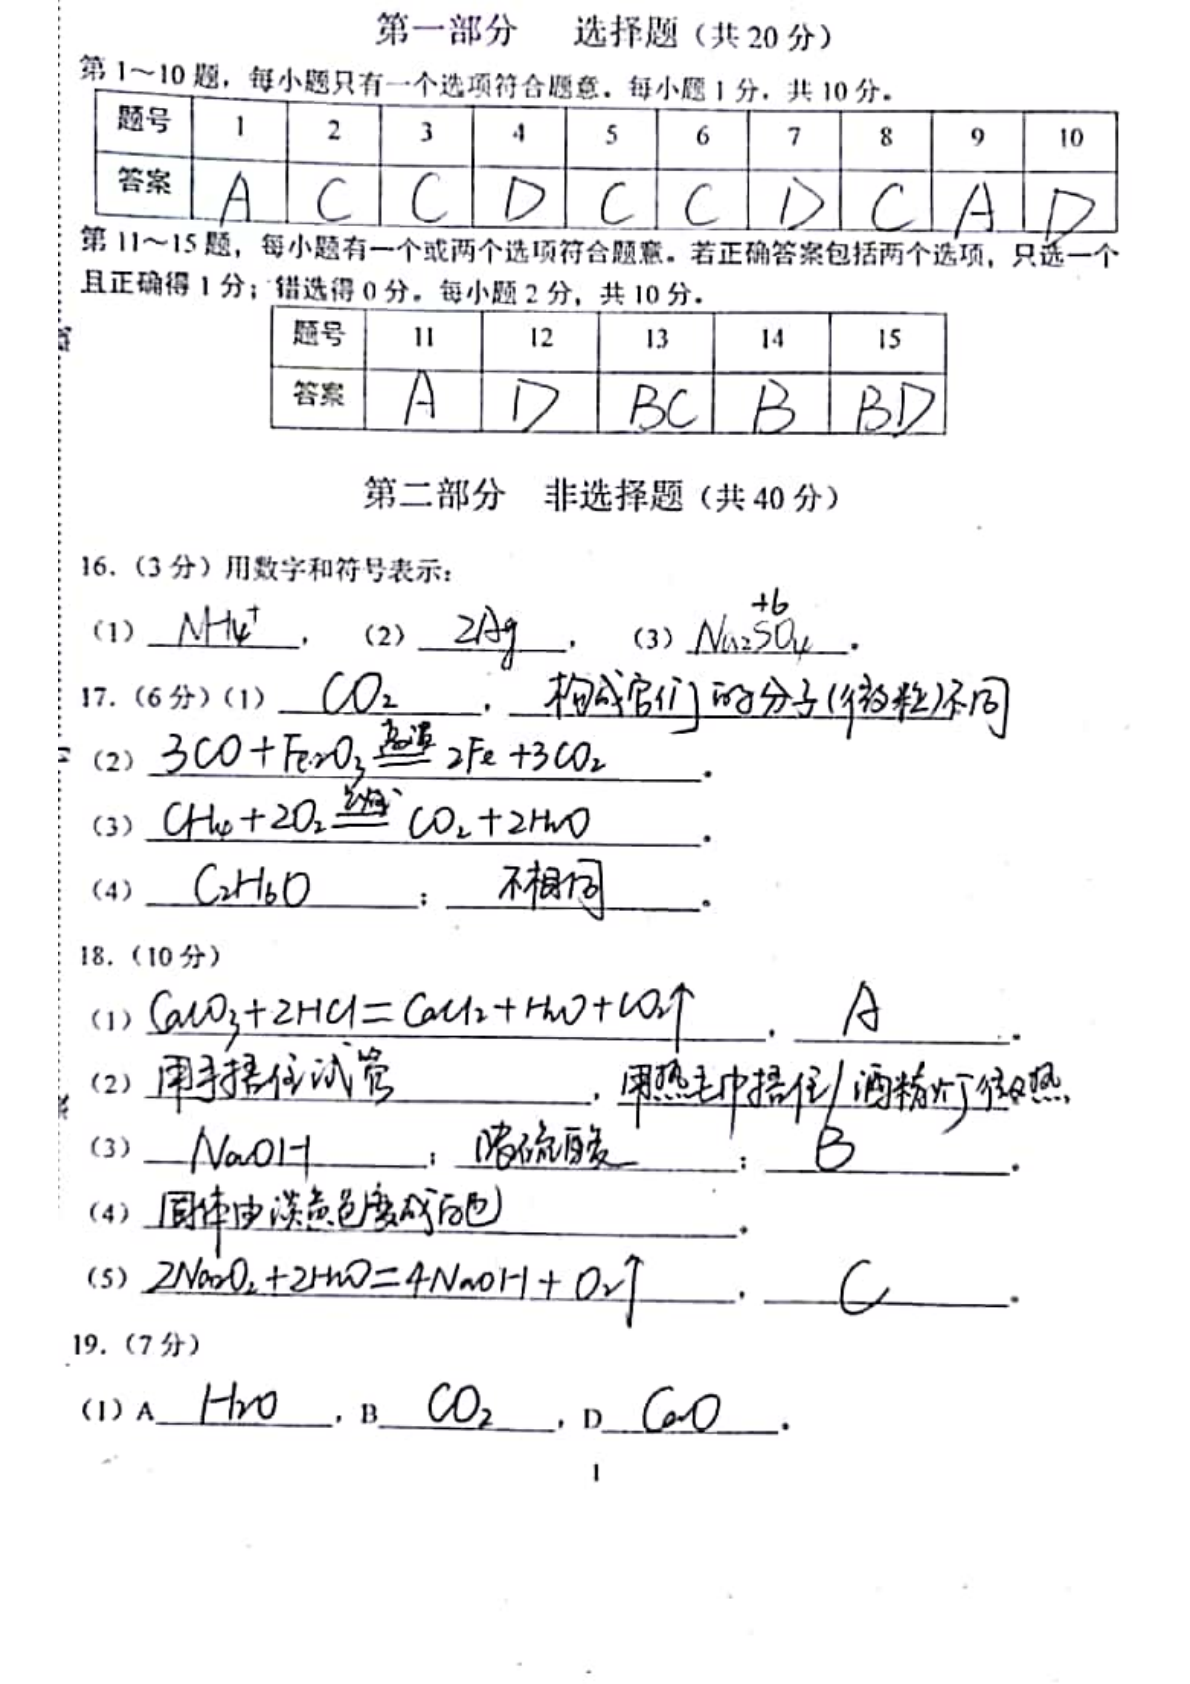 第一部分 选择题（共 20 分）
第 1～10 题，每小题只有一个选项符合题意。每小题 1 分，共 10 分。
题号 1 2 3 4 5 6 7 8 9 10
答案 A C C D C C D C A D
第 11～15 题，每小题有一个或两个选项符合题意。若正确答案包括两个选项，只选一个
且正确得 1 分；错选得 0 分。每小题 2 分，共 10 分。
题号 11 12 13 14 15
答案 A D BC B BD
第二部分 非选择题（共 40 分）
16.（3 分）用数字和符号表示：
（1）NH₄⁺，（2）2Ag，（3）Na₂SO₄。
+6
17.（6 分）（1）CO₂，构成它们的分子(微粒)不同
（2）3CO+Fe₂O₃ 高温══ 2Fe+3CO₂。
（3）CH₄+2O₂ 点燃══ CO₂+2H₂O。
（4）C₂H₆O；不相同。
18.（10 分）
（1）CaCO₃+2HCl=CaCl₂+H₂O+CO₂↑，A。
（2）用手捂住试管，用热毛巾捂住/酒精灯微热。
（3）NaOH；浓硫酸；B。
（4）固体由淡黄色变成白色。
（5）2Na₂O₂+2H₂O=4NaOH+O₂↑，C。
19.（7 分）
（1）A H₂O，B CO₂，D CaO。
1